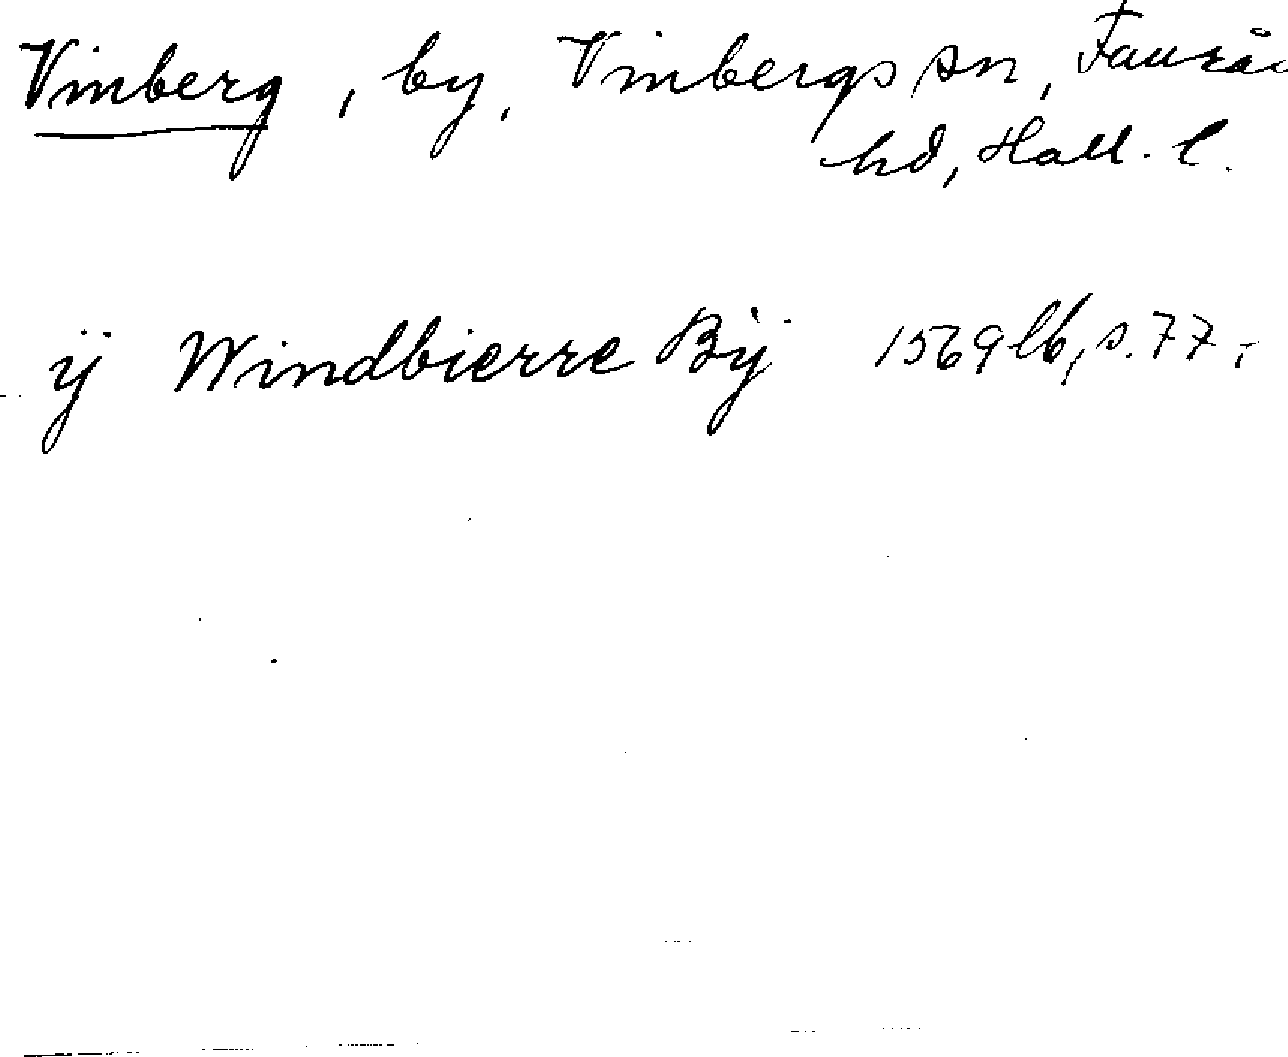 Vinberg, by, Vinbergs sn, Faurås
hd, Hall. l.
ÿ Windbierre Bÿ 1569 lb, s. 77.